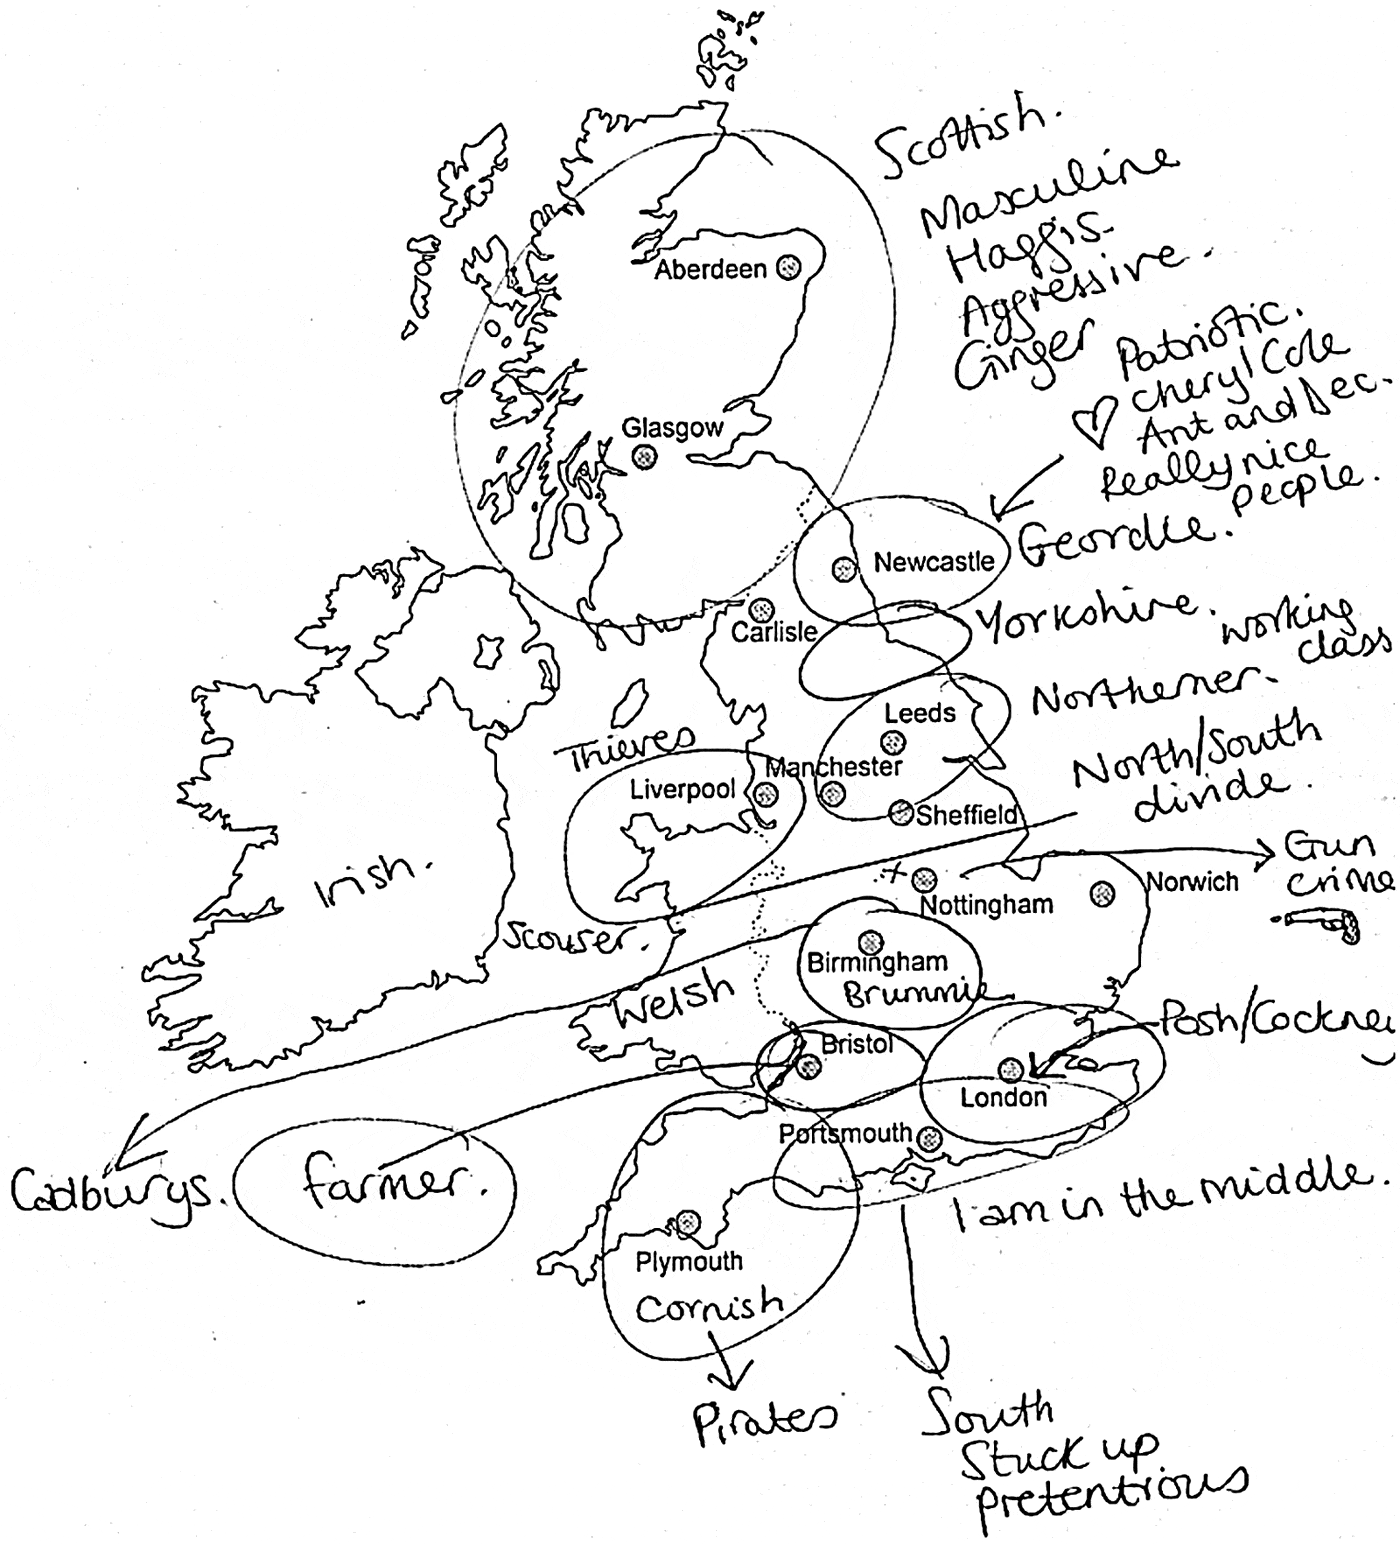 Scottish.
Masculine
Haggis.
Aggressive.
Ginger
Aberdeen
Patriotic.
Cheryl Cole
Ant and Dec.
Really nice
people.
Glasgow
Geordie.
Newcastle
Carlisle
Yorkshire.
working
class
Northerner.
Leeds
Thieves
North/South
divide.
Manchester
Liverpool
Sheffield
Gun
crime
Irish.
Nottingham
Norwich
Scouser.
Birmingham
Brummie
Welsh
Posh/Cockney
Bristol
London
Portsmouth
Cadburys.
farmer.
I am in the middle.
Plymouth
Cornish
Pirates
South
Stuck up
pretentrious